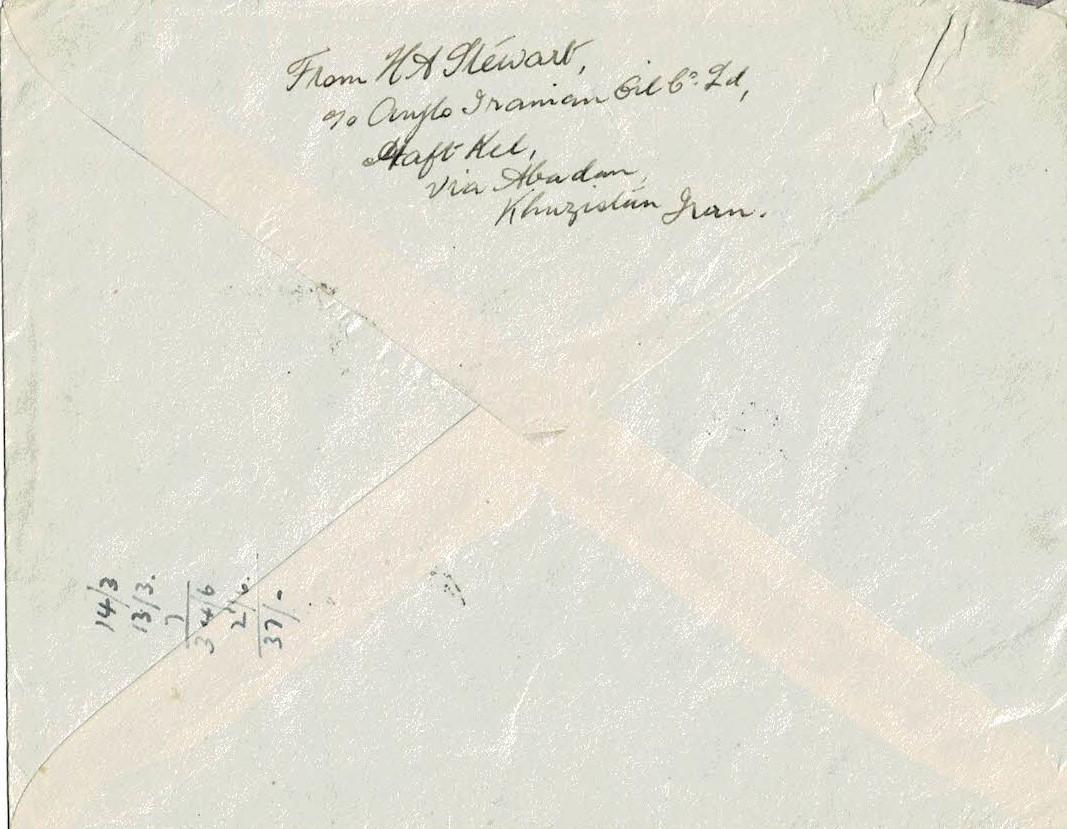 From H A Stewart,
c/o Anglo Iranian Oil Co. Ld,
Naft Kel,
Via Abadan,
Khuzistan Iran.
14/3
13/3.
7
34 6
2/6.
37/-